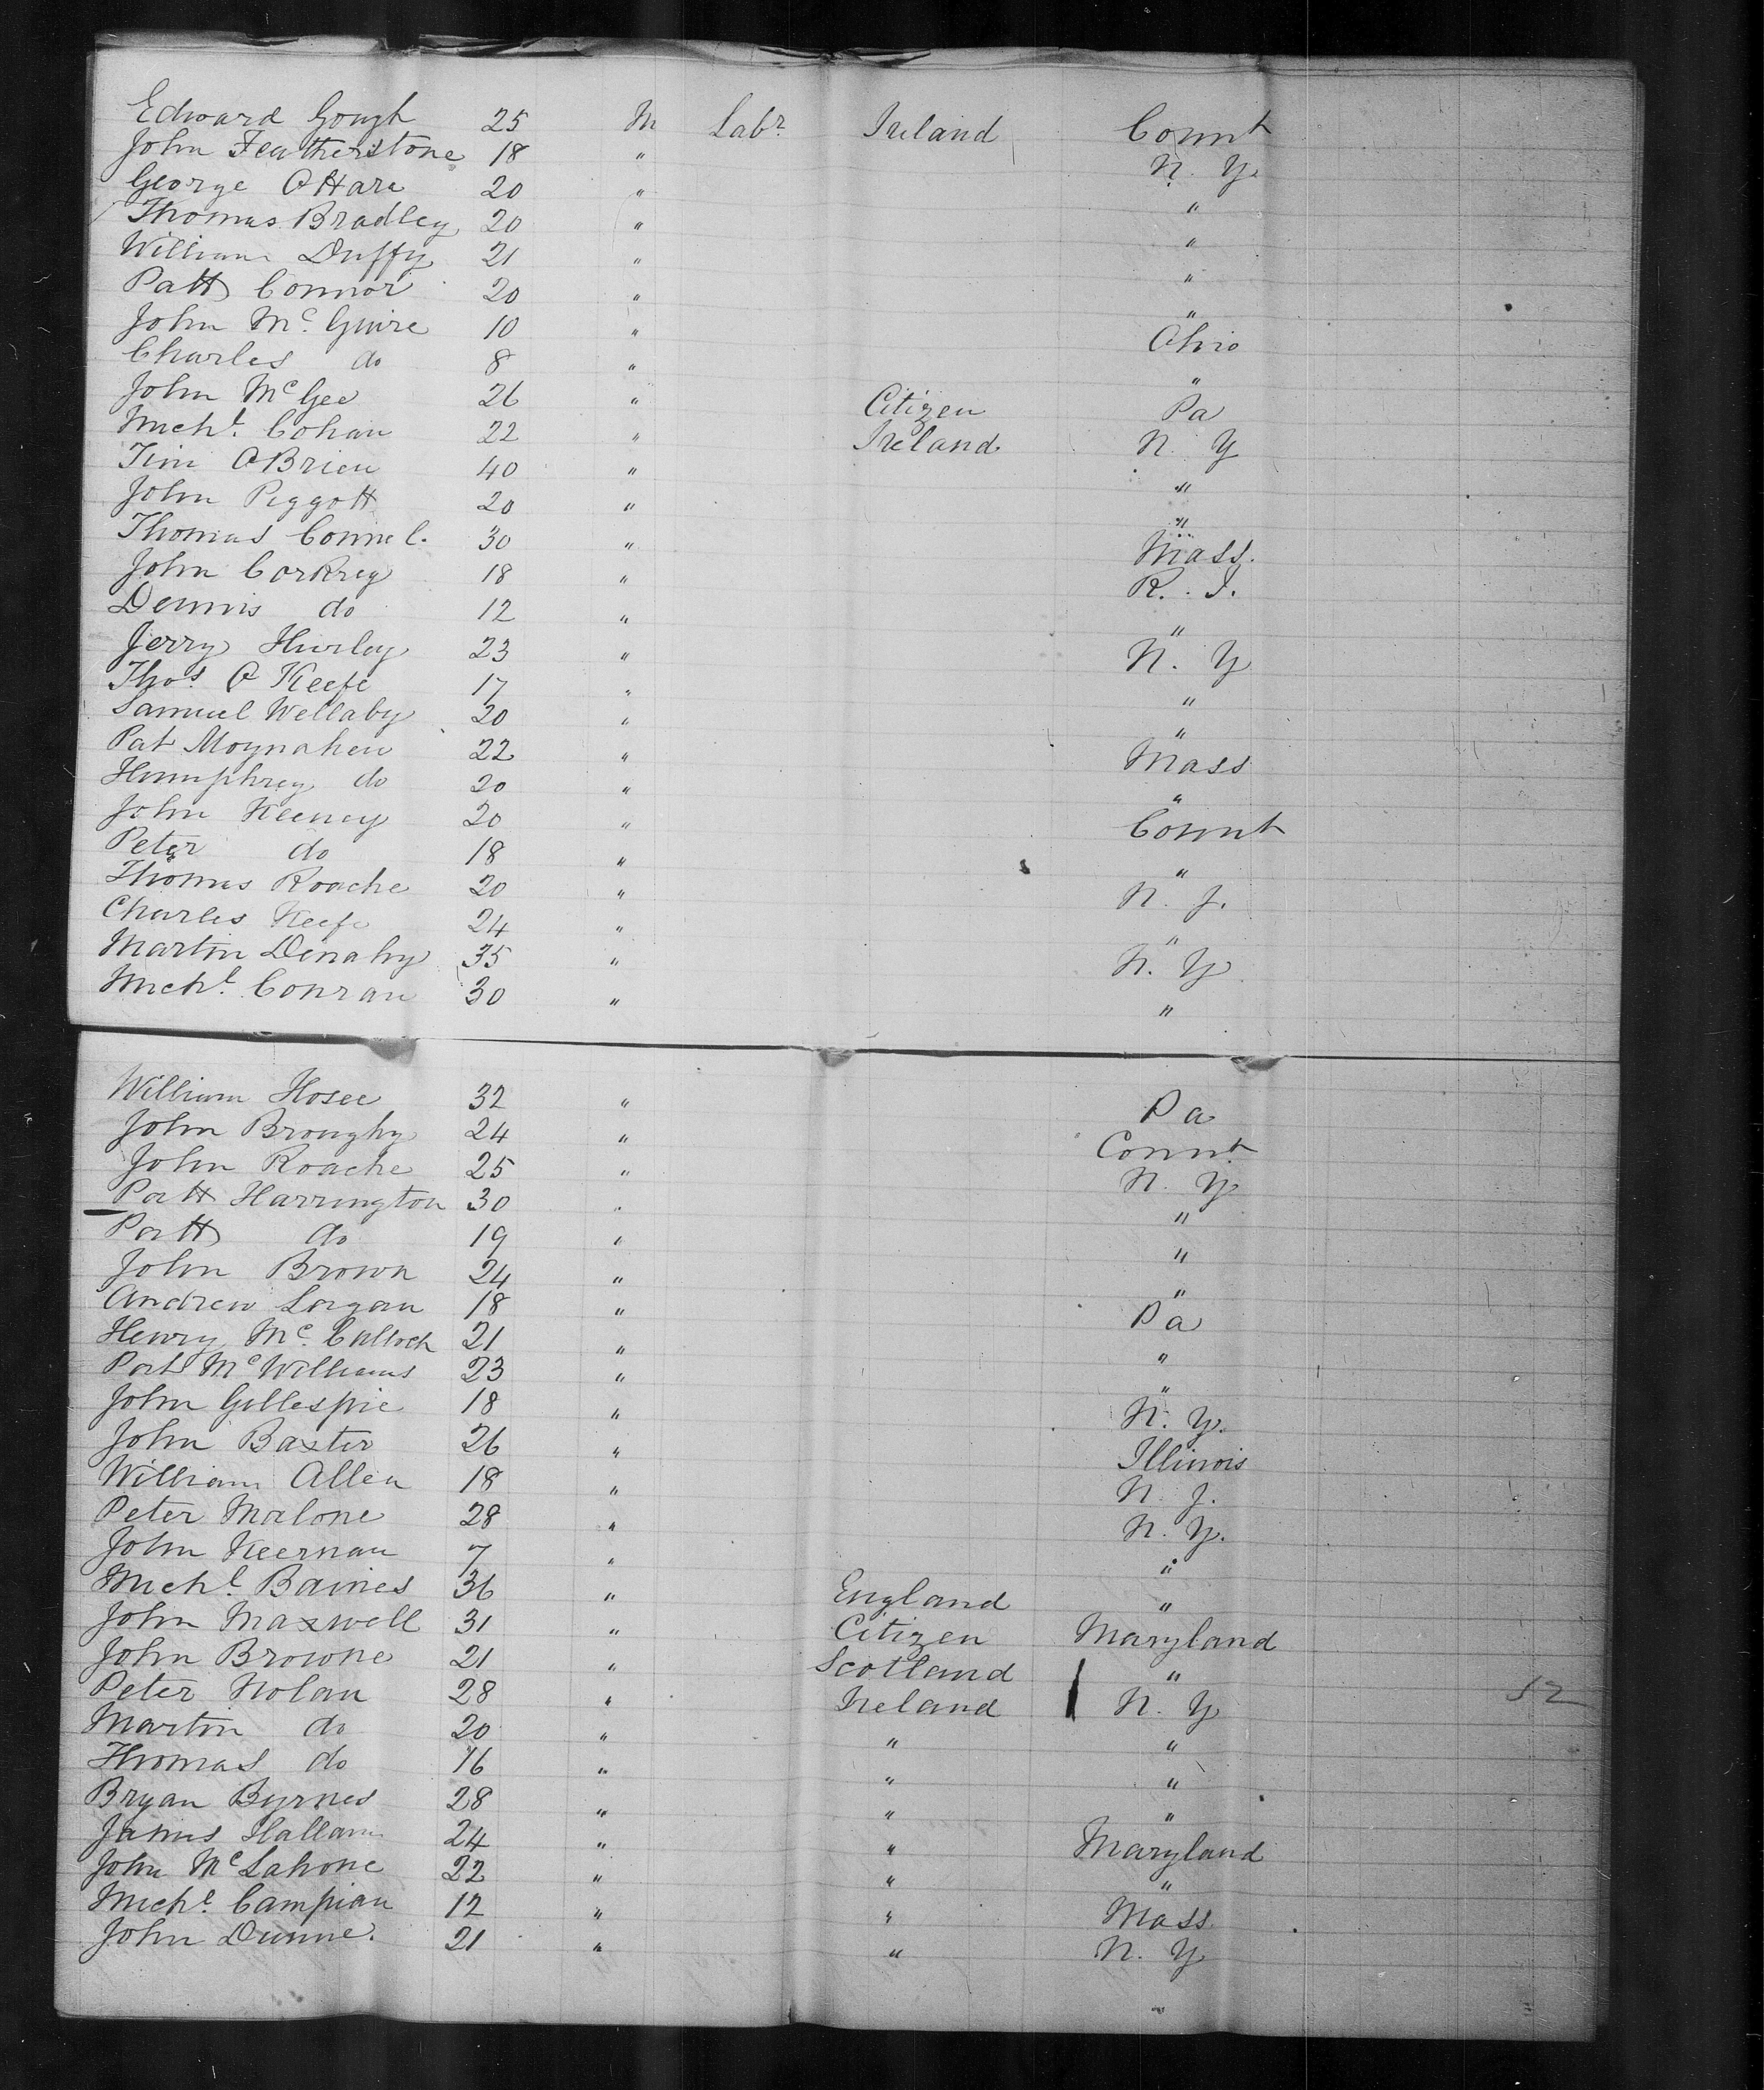 Edward Gough 25 M Labr Ireland Connt
John Featherstone 18 " N. Y.
George O Hara 20 " "
Thomas Bradley 20 " "
William Duffy 21 " "
Patt Connor 20 " "
John Mc Guire 10 " Ohio
Charles do 8 " "
John McGee 26 " Citizen Pa
Michl. Cohan 22 " Ireland N. Y
Tim O Brien 40 " "
John Piggott 20 " "
Thomas Connel. 30 " Mass.
John Corkrey 18 " R. I.
Dennis do 12 " "
Jerry Hurley 23 " N. Y
Thos. O Keefe 17 " "
Samuel Wellaby 20 " "
Pat Moynahen 22 " Mass
Humphrey do 20 " "
John Keeney 20 " Connt
Peter do 18 " "
Thomas Roache 20 " N. J.
Charles Keefe 24 " "
Martin Denahy 35 " N. Y
Michl. Conran 30 " "
William Hosee 32 " Pa
John Broughy 24 " Connt
John Roache 25 " N. Y
Patt Harrington 30 " "
Patt do 19 " "
John Brown 24 " "
Andrew Lorgan 18 " Pa
Henry Mc. Culloch 21 " "
Patt McWilliams 23 " "
John Gillespie 18 " N. Y.
John Baxter 26 " Illinois
William Allen 18 " N. J.
Peter Malone 28 " N. Y.
John Keernan 7 " "
Michl. Baines 36 " England "
John Maxwell 31 " Citizen Maryland
John Browne 21 " Scotland "
Peter Nolan 28 " Ireland N. Y 52
Martin do 20 " " "
Thomas do 16 " " "
Bryan Byrnes 28 " " "
James Hallam 24 " " Maryland
John McLahone 22 " " "
Michl. Campian 12 " " Mass
John Dunne. 21 " " N. Y
"